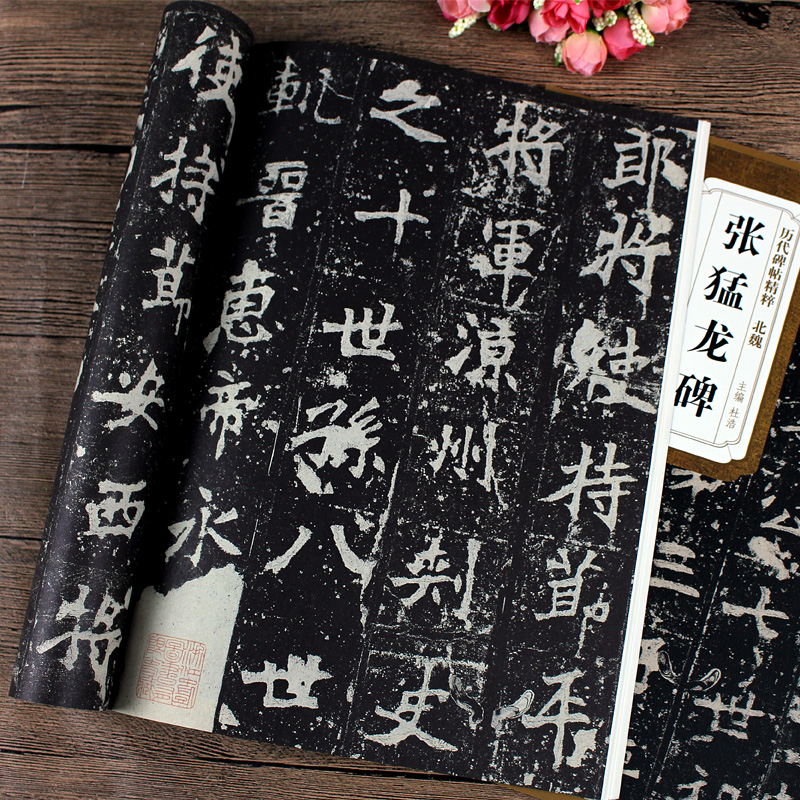 历代碑帖精粹 北魏
张猛龙碑
主编 杜浩
郎將使持莭平
將軍涼州刾史
之十世孫八世
軌晉惠帝永
使持莭安西將
公七世
三